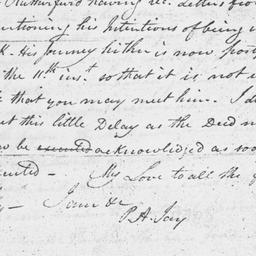 Rutherfurd having rec. Letters fro
tioning his Intentions of being
K. His Journey hither is now post
the 11th inst. so that it is not
that you may meet him. I d
ut this little Delay as the Deed
be executed acknowledged as soo
uted –
My Love to all the
I am &c
P. A. Jay